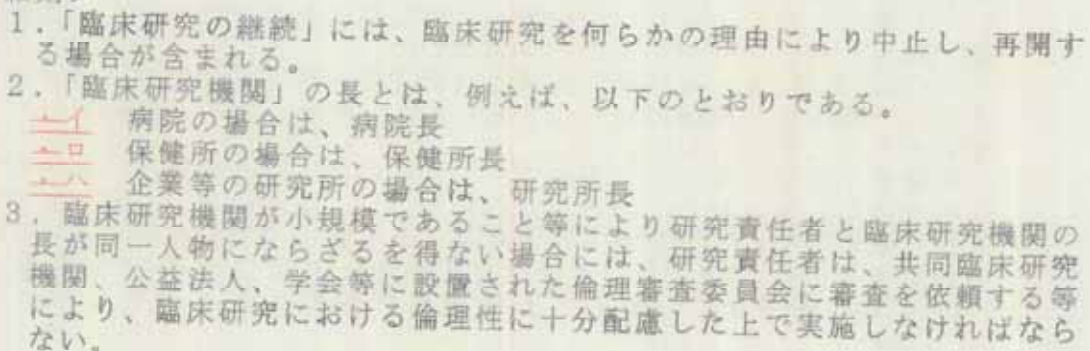 1.「臨床研究の継続」には、臨床研究を何らかの理由により中止し、再開す
る場合が含まれる。
2.「臨床研究機関」の長とは、例えば、以下のとおりである。
イ 病院の場合は、病院長
ロ 保健所の場合は、保健所長
ハ 企業等の研究所の場合は、研究所長
3.臨床研究機関が小規模であること等により研究責任者と臨床研究機関の
長が同一人物にならざるを得ない場合には、研究責任者は、共同臨床研究
機関、公益法人、学会等に設置された倫理審査委員会に審査を依頼する等
により、臨床研究における倫理性に十分配慮した上で実施しなければなら
ない。